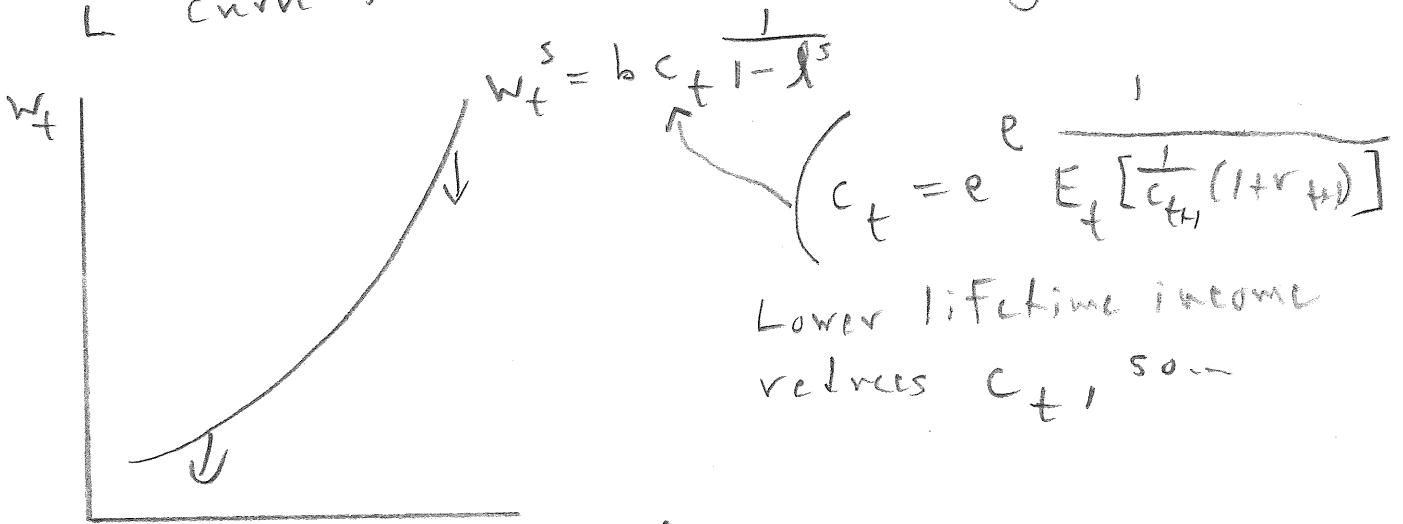 L
w_t^s = b c_t \frac{1}{1-l^s}
w_t
( c_t = e^{\rho} \frac{1}{E_t [\frac{1}{c_{t+1}} (1+r_{t+1})]}
Lower lifetime income
reduces c_t, so...